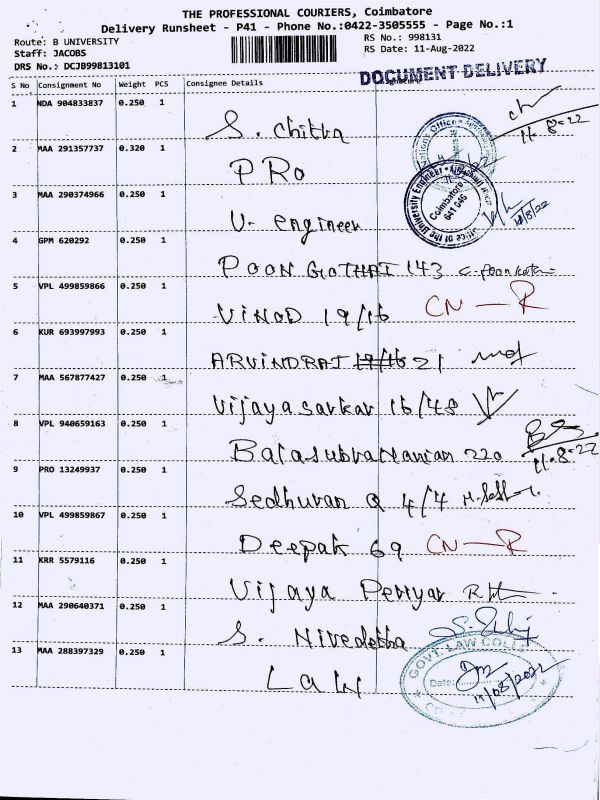 THE PROFESSIONAL COURIERS, Coimbatore
Delivery Runsheet - P41 - Phone No.:0422-3505555 - Page No.:1
Route: B UNIVERSITY
RS No.: 998131
Staff: JACOBS
RS Date: 11-Aug-2022
DRS No.: DCJB99813101
DOCUMENT DELIVERY
S No Consignment No Weight PCS Consignee Details
1 NDA 904833837 0.250 1
S. Chitra
11.8.22
2 MAA 291357737 0.320 1
PRO
3 MAA 290374966 0.250 1
U- engineer
Office of the University Engineer
Coimbatore
641 046
4 GPM 620292 0.250 1
POONGOTHAI 143
5 VPL 499859866 0.250 1
VINOD 19/16 CN-R
6 KUR 693997993 0.250 1
ARVINDRAJ 19/16 21
7 MAA 567877427 0.250 1
Vijayasarkar 16/48
8 VPL 940659163 0.250 1
Balasubramanian 220
11.8.22
9 PRO 13249937 0.250 1
Sedhuran Q 4/4
10 VPL 499859867 0.250 1
Deepak 69 CN-R
11 KRR 5579116 0.250 1
Vijaya Periyar
12 MAA 290640371 0.250 1
S. Nivedetha
13 MAA 288397329 0.250 1
Law
GOVT. LAW COLLEGE
Date:
11/08/2022